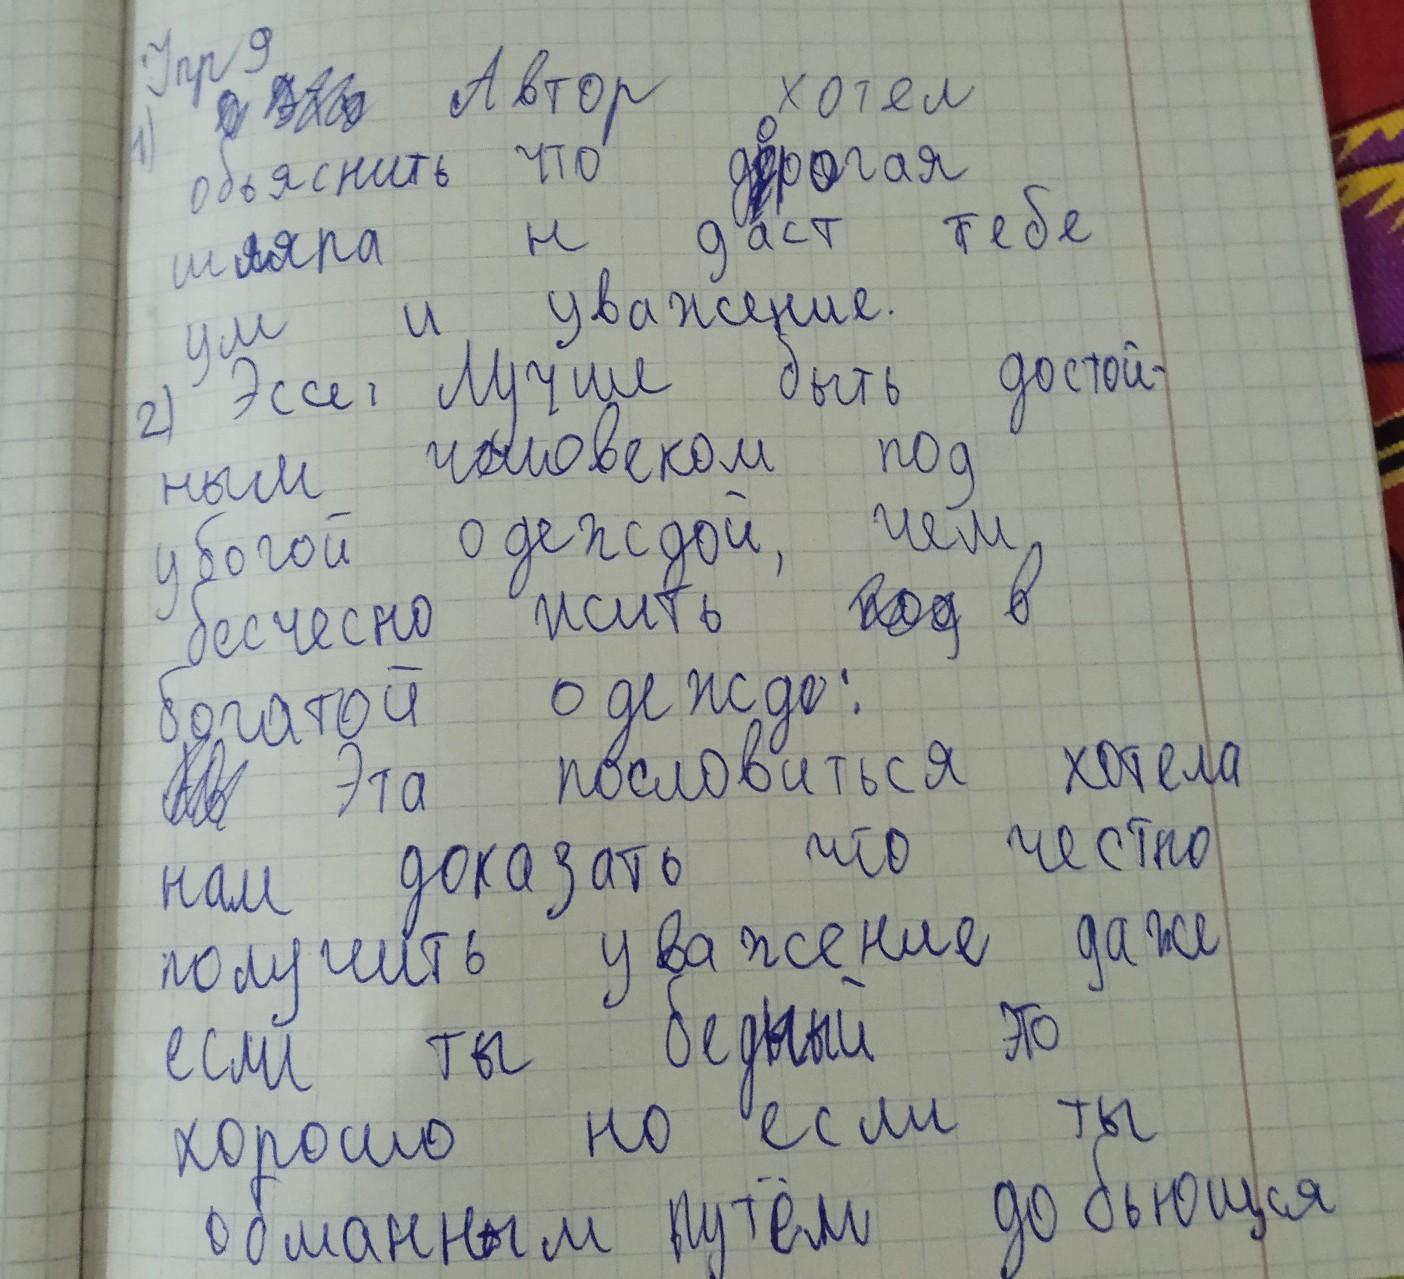 Упр 9
1) Автор хотел
обьяснить что дорогая
шляпа н даст тебе
ум и уважение.
2) Эссе: Лучше быть достой-
ным человеком под
убогой одеждой, чем
бесчесно жить в
богатой одеждо:
Эта пословиться хотела
нам доказать что честно
получить уважение даже
если ты бедный это
хорошо но если ты
обманным путём добьющся